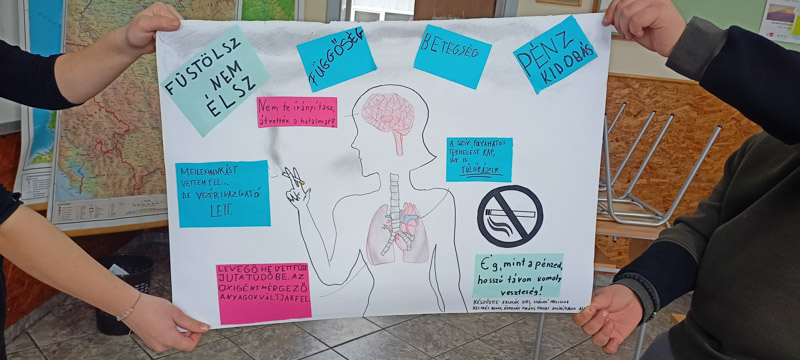 FÜSTÖLSZ
NEM
ÉLSZ
FÜGGŐSÉG
BETEGSÉG
PÉNZ
KIDOBÁS
Nem te irányítasz,
átvették a hatalmat!
A SZÍV FOLYAMATOS
TERHELÉST KAP,
ÍGY IS
TÚLÓRÁZIK
MELLÉKMUNKÁST
VETTEM FEL...
DE VEZÉRIGAZGATÓ
LETT.
LEVEGŐ HELYETT FÜST
JUT A TÜDŐBE. AZ
OXIGÉNT MÉRGEZŐ
ANYAGOK VÁLTJÁK FEL
Ég, mint a pénzed,
hosszú távon komoly
veszteség!
KÉSZÍTETTE: